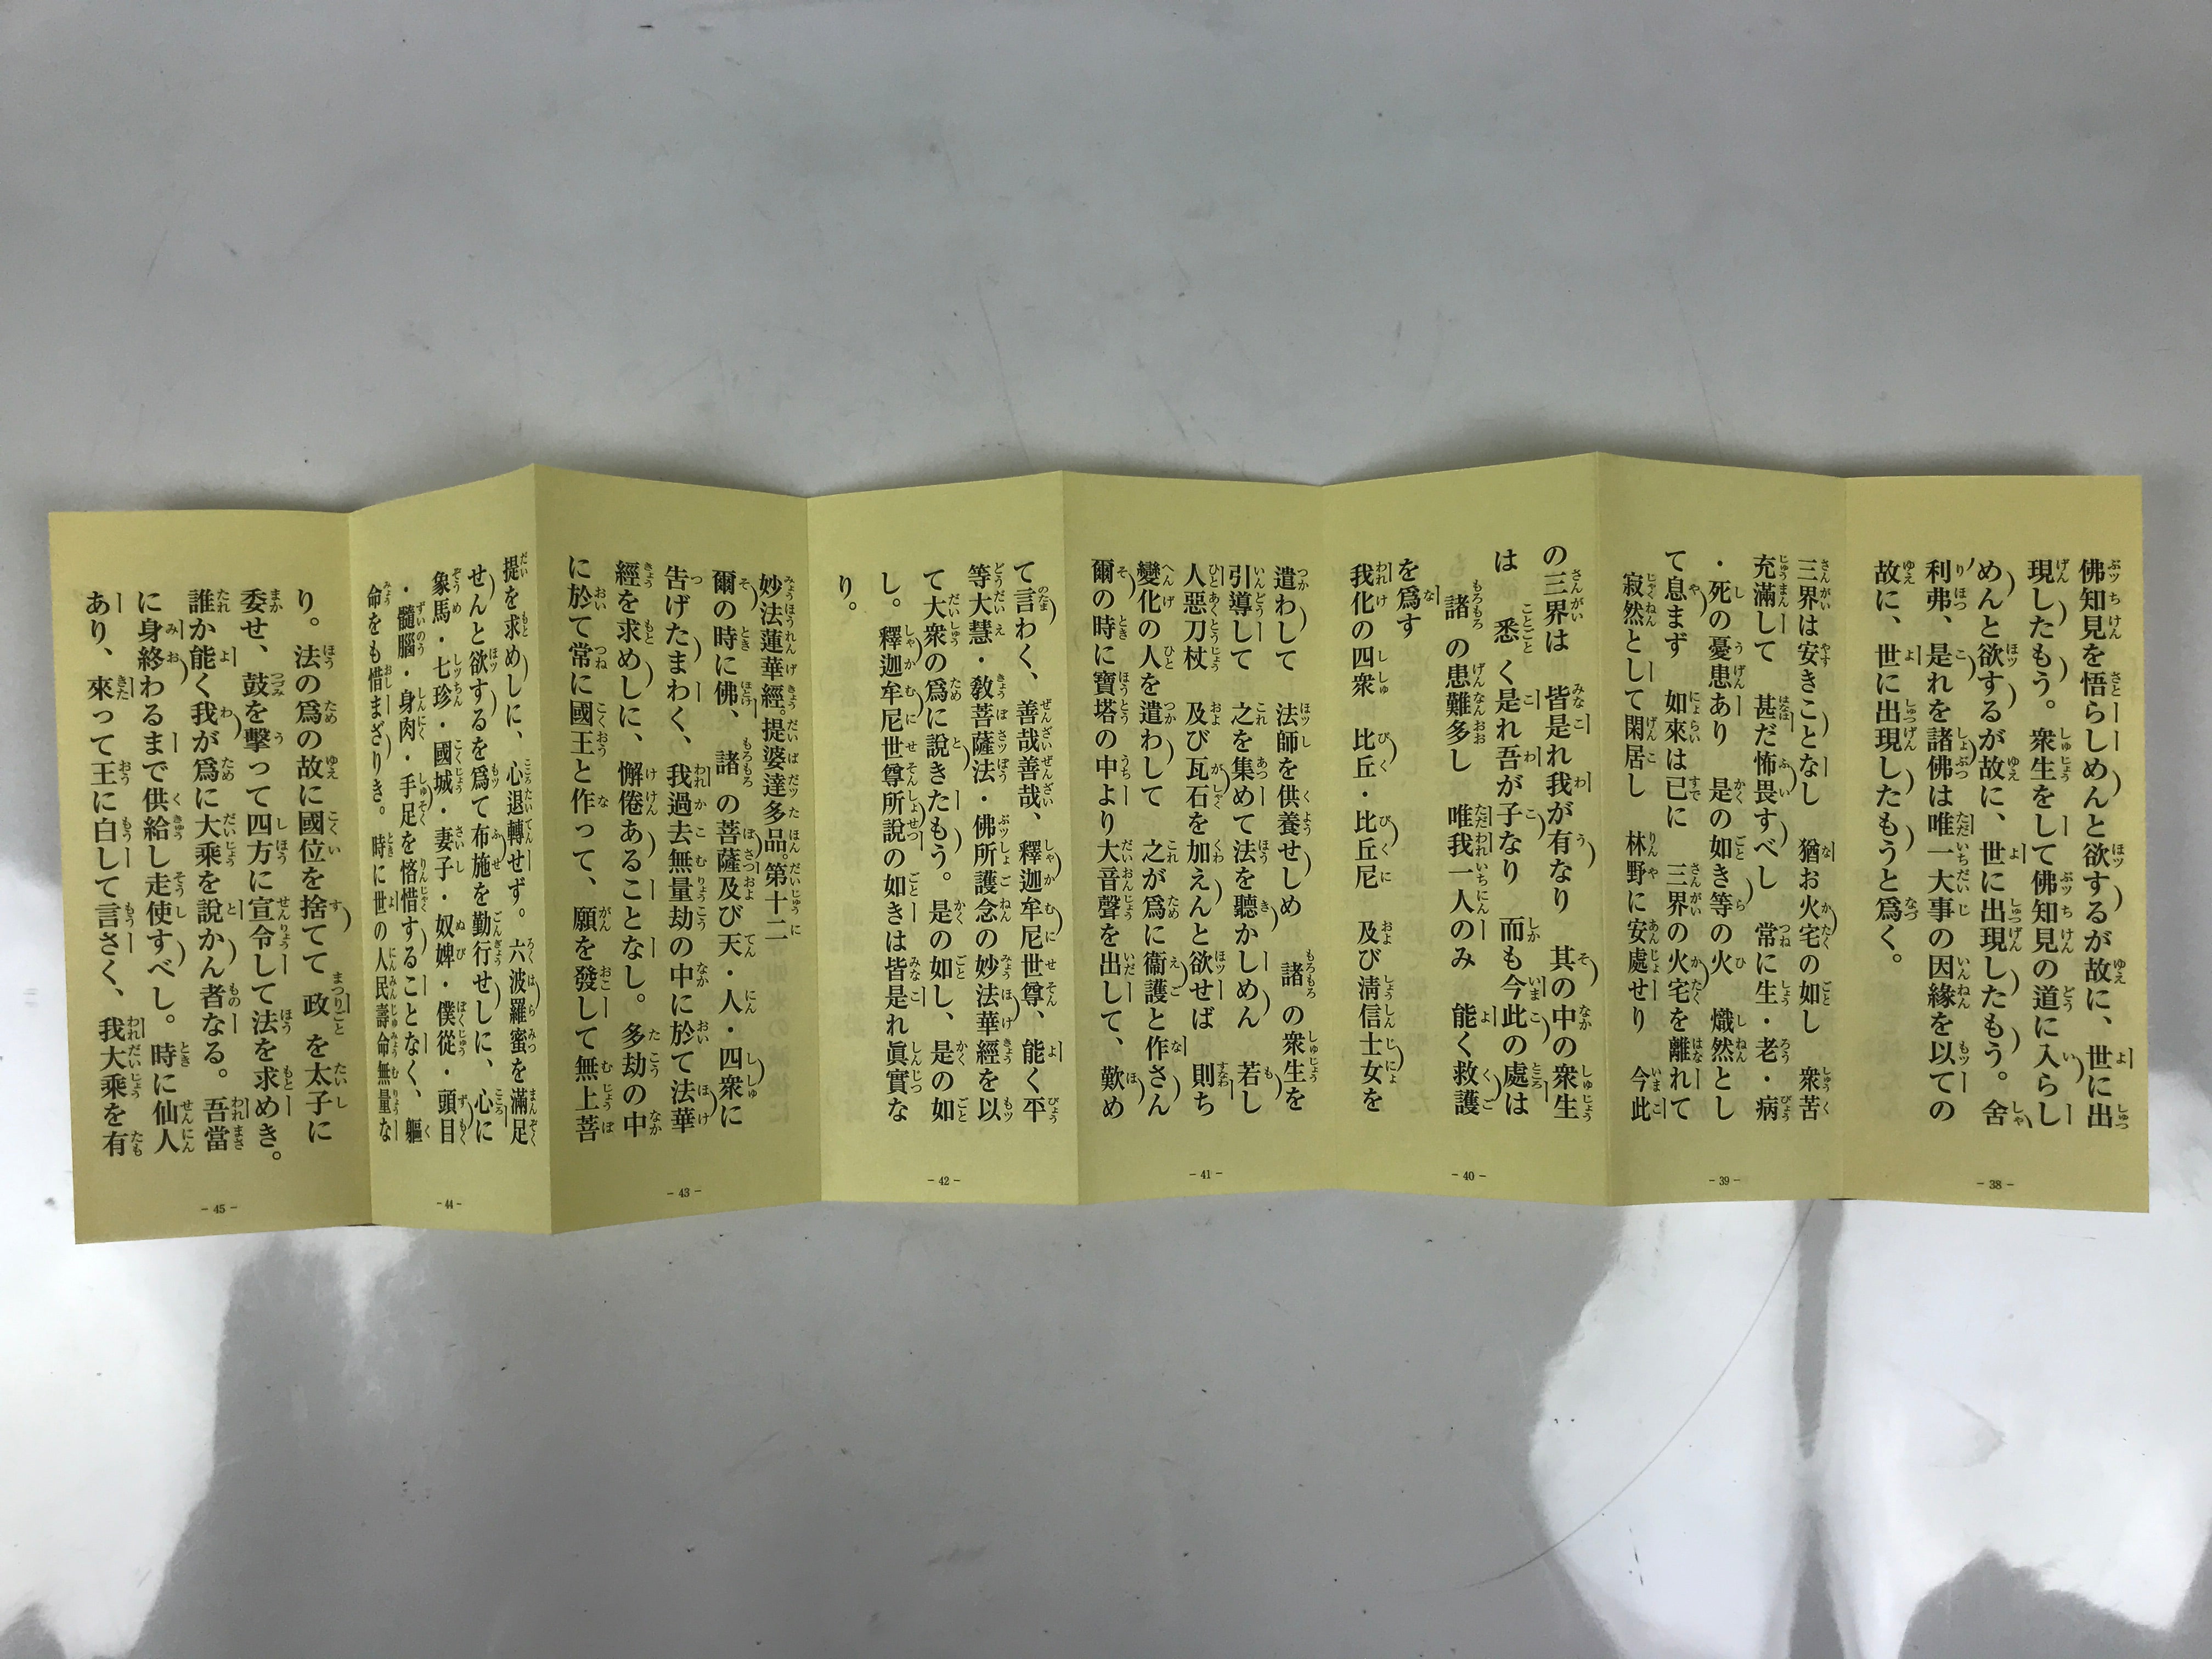 佛知見を悟らしめんと欲するが故に、世に出
現したもう。衆生をして佛知見の道に入らし
めんと欲するが故に、世に出現したもう。舍
利弗、是れを諸佛は唯一大事の因緣を以ての
故に、世に出現したもうと爲く。
－38－
三界は安きことなし　猶お火宅の如し　衆苦
充滿して　甚だ怖畏すべし　常に生・老・病
・死の憂患あり　是の如き等の火　熾然とし
て息まず　如來は已に　三界の火宅を離れて
寂然として閑居し　林野に安處せり　今此
－39－
の三界は　皆是れ我が有なり　其の中の衆生
は　悉く是れ吾が子なり　而も今此の處は
諸の患難多し　唯我一人のみ　能く救護
を爲す
我化の四衆　比丘・比丘尼　及び淸信士女を
－40－
遣わして　法師を供養せしめ　諸の衆生を
引導して　之を集めて法を聽かしめん　若し
人惡刀杖　及び瓦石を加えんと欲せば　則ち
變化の人を遣わして　之が爲に衞護と作さん
爾の時に寶塔の中より大音聲を出して、歎め
－41－
て言わく、善哉善哉、釋迦牟尼世尊、能く平
等大慧・敎菩薩法・佛所護念の妙法華經を以
て大衆の爲に說きたもう。是の如し、是の如
し。釋迦牟尼世尊所說の如きは皆是れ眞實な
り。
－42－
妙法蓮華經。提婆達多品。第十二
爾の時に佛、諸の菩薩及び天・人・四衆に
告げたまわく、我過去無量劫の中に於て法華
經を求めしに、懈倦あることなし。多劫の中
に於て常に國王と作って、願を發して無上菩
－43－
提を求めしに、心退轉せず。六波羅蜜を滿足
せんと欲するを爲て布施を勤行せしに、心に
象馬・七珍・國城・妻子・奴婢・僕從・頭目
・髓腦・身肉・手足を悋惜することなく、軀
命をも惜まざりき。時に世の人民壽命無量な
－44－
り。法の爲の故に國位を捨てて　政を太子に
委せ、鼓を擊って四方に宣令して法を求めき。
誰か能く我が爲に大乘を說かん者なる。吾當
に身終わるまで供給し走使すべし。時に仙人
あり、來って王に白して言さく、我大乘を有
－45－